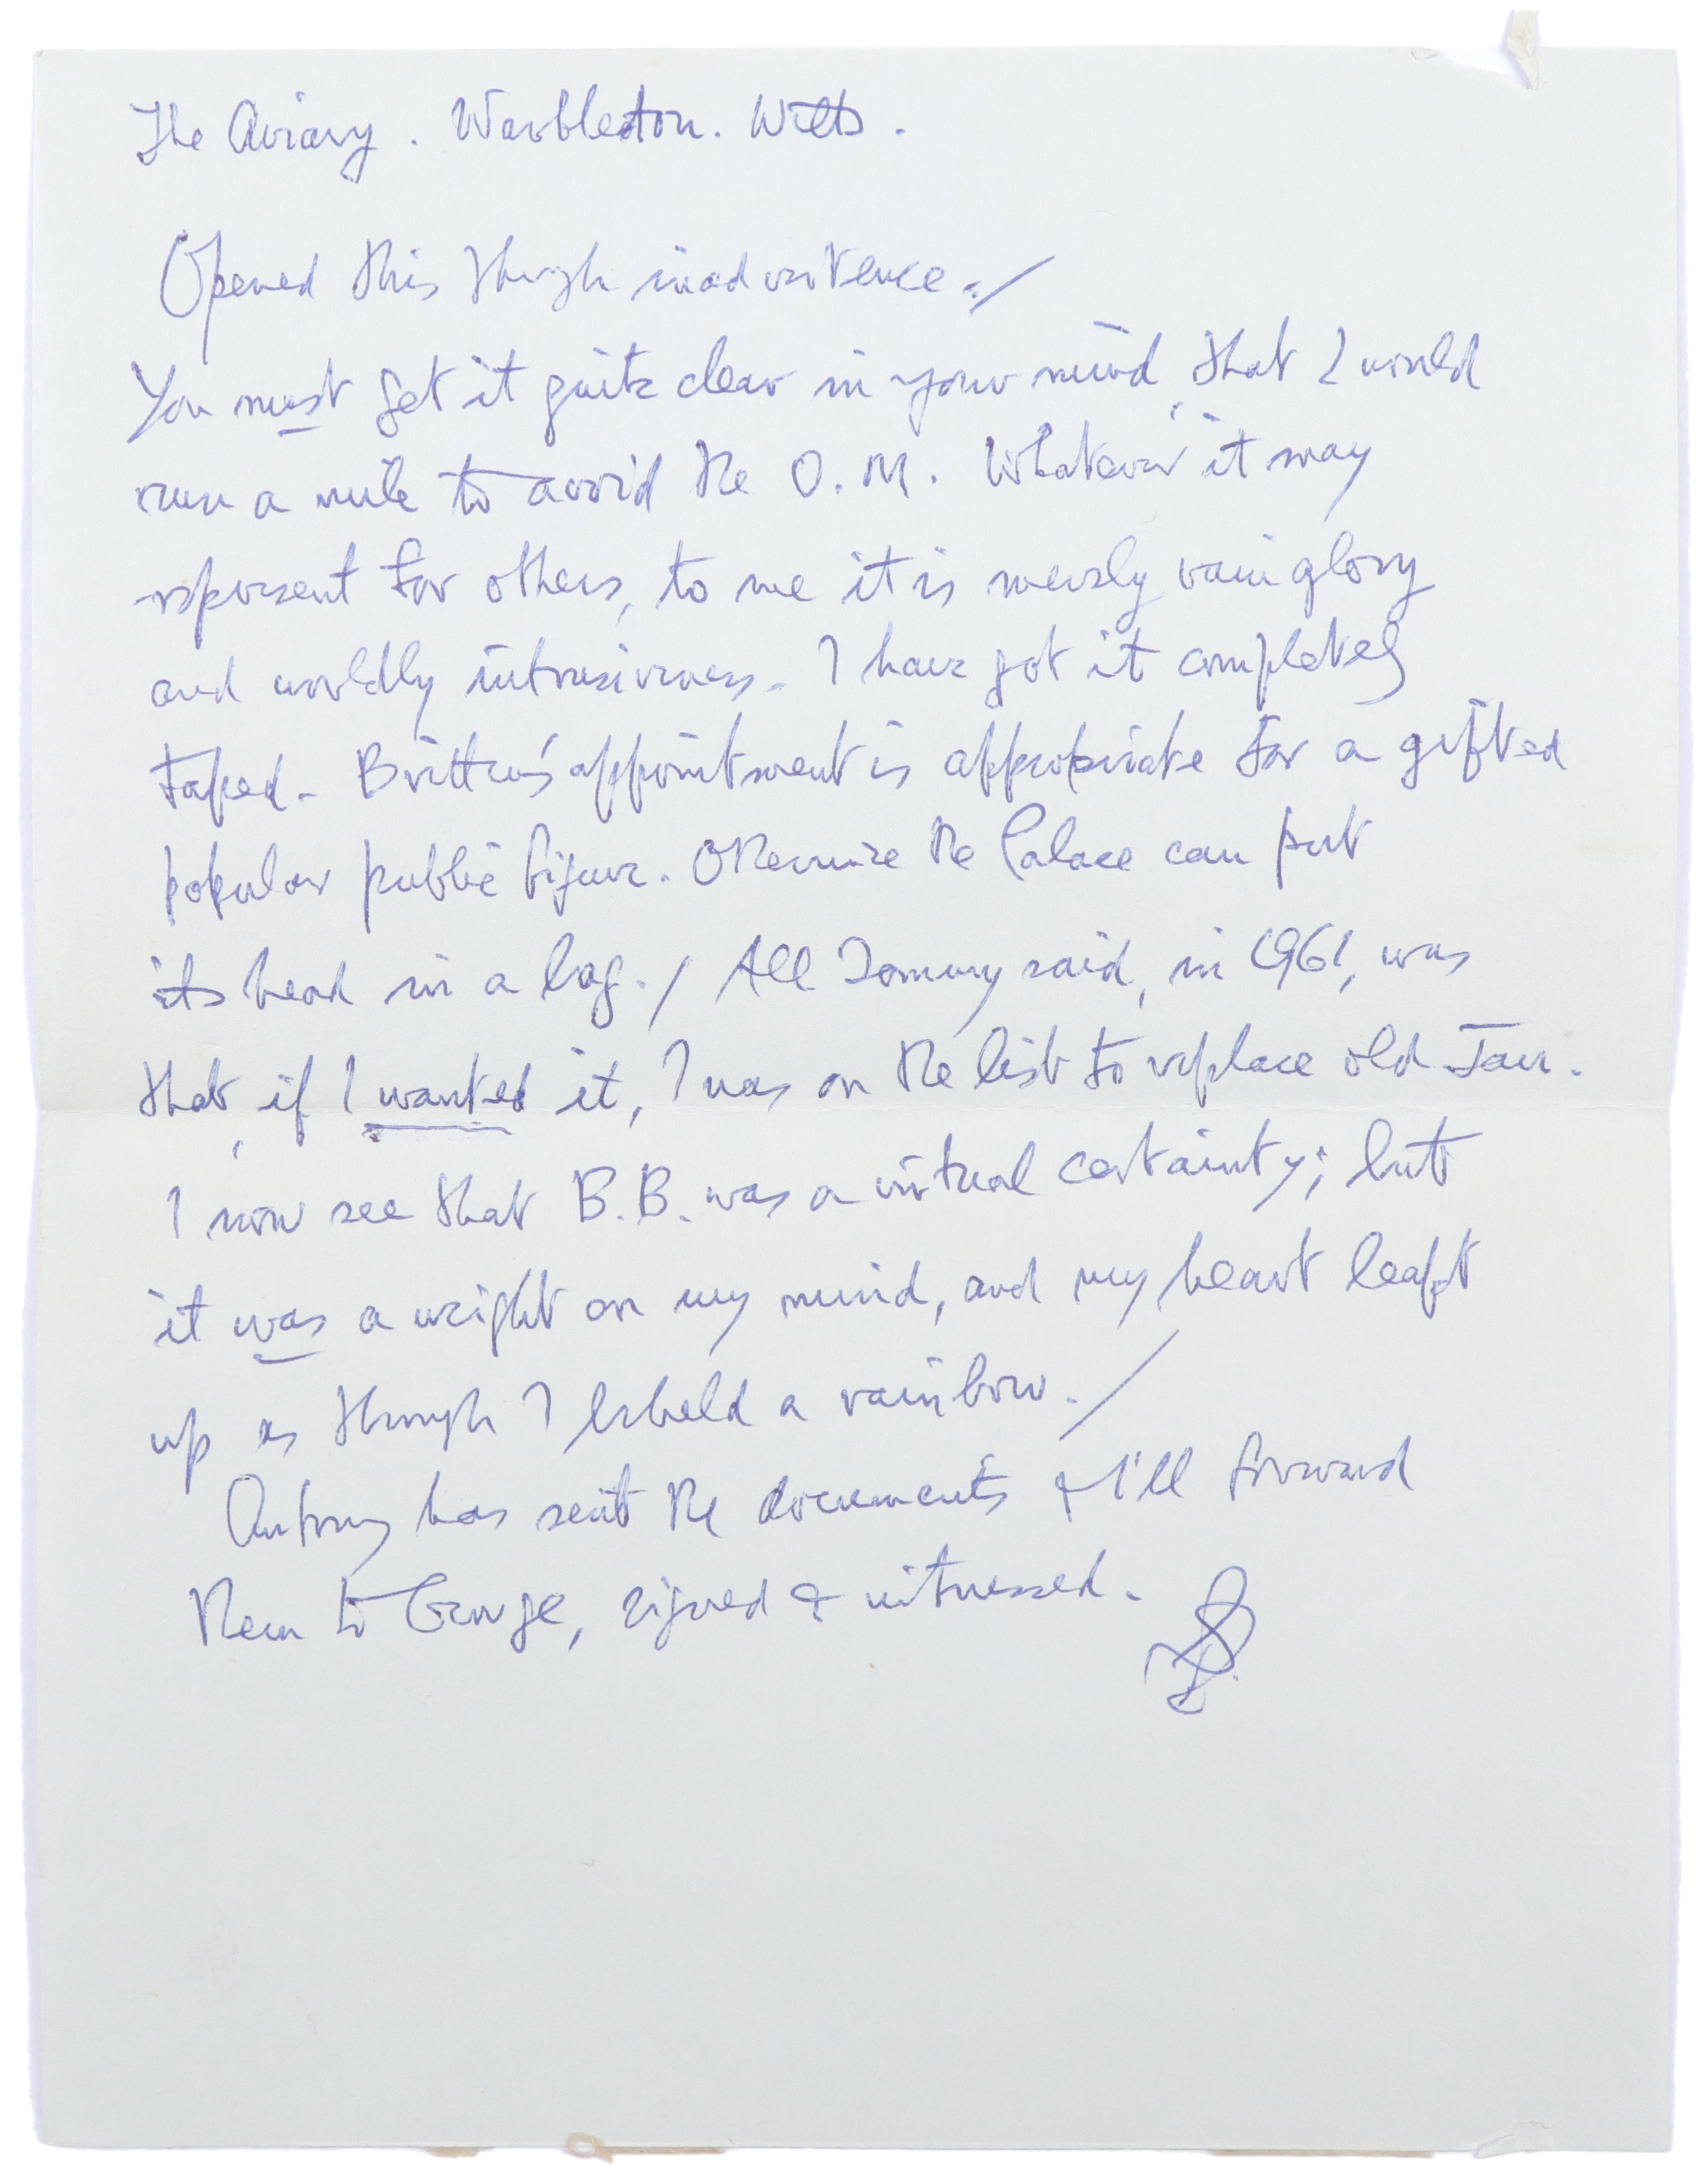 The Aviary. Warbleton. Wilts.
Opened this though inadvertence./
You must get it quite clear in your mind, that I would
run a mile to avoid the O.M. Whatever it may
represent for others, to me it is merely vainglory
and worldly intrusiveness. I have got it completely
taped. Britten's appointment is appropriate for a gifted
popular public figure. Otherwise the Palace can put
its head in a bag./ All Tommy said, in 1961, was
that, if I wanted it, I was on the list to replace old Jau.
I now see that B.B. was a virtual certainty; but
it was a weight on my mind, and my heart leapt
up as though I beheld a rainbow./
Antony has sent the documents & I'll forward
them to George, signed & witnessed.